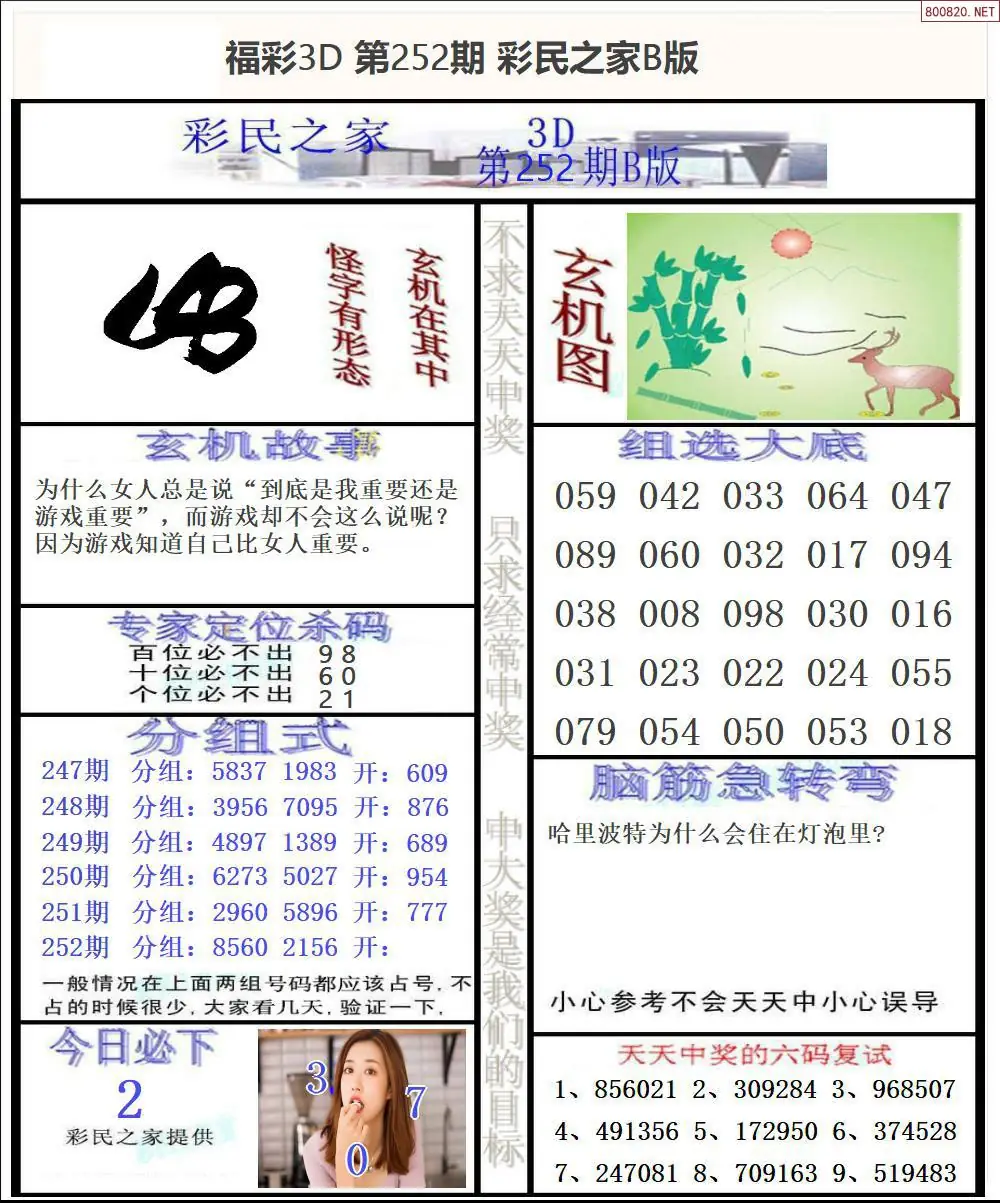 800820.NET
福彩3D 第252期 彩民之家B版
彩民之家
3D
第252期B版
怪字有形态
玄机在其中
玄机故事
为什么女人总是说“到底是我重要还是
游戏重要”，而游戏却不会这么说呢？
因为游戏知道自己比女人重要。
专家定位杀码
百位必不出 98
十位必不出 60
个位必不出 21
分组式
247期 分组：5837 1983 开：609
248期 分组：3956 7095 开：876
249期 分组：4897 1389 开：689
250期 分组：6273 5027 开：954
251期 分组：2960 5896 开：777
252期 分组：8560 2156 开：
一般情况在上面两组号码都应该占号,不
占的时候很少,大家看几天,验证一下,
今日必下
2
彩民之家提供
3
7
0
不求天天中奖
只求经常中奖
中大奖是我们的目标
玄机图
组选大底
059 042 033 064 047
089 060 032 017 094
038 008 098 030 016
031 023 022 024 055
079 054 050 053 018
脑筋急转弯
哈里波特为什么会住在灯泡里?
小心参考不会天天中小心误导
天天中奖的六码复试
1、856021 2、309284 3、968507
4、491356 5、172950 6、374528
7、247081 8、709163 9、519483